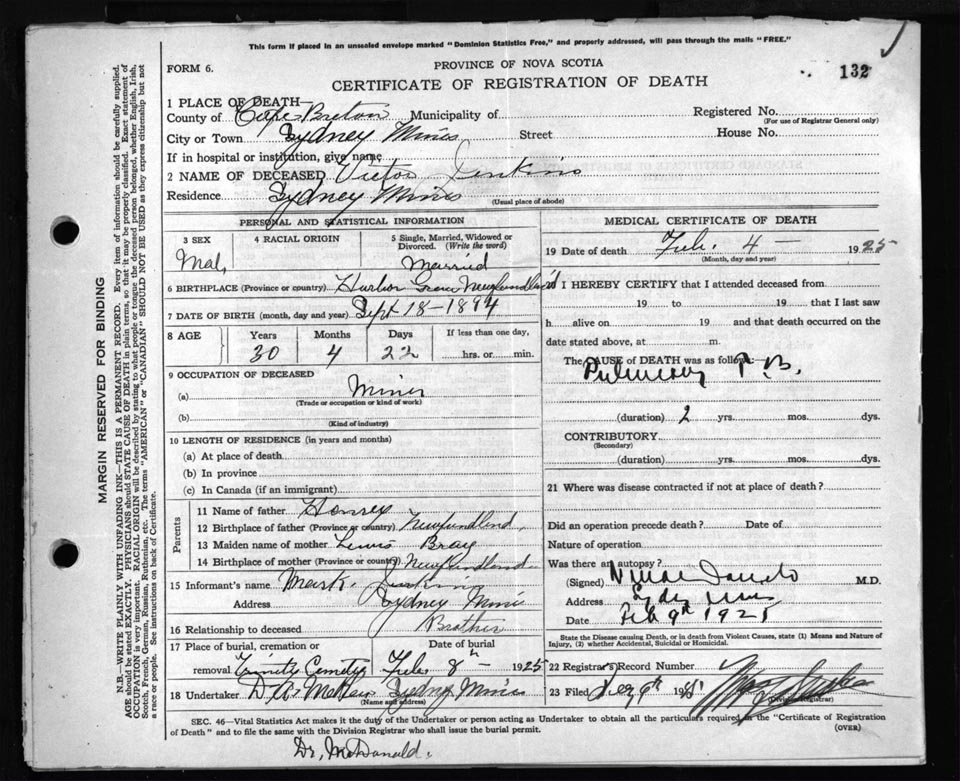 This form if placed in an unsealed envelope marked "Dominion Statistics Free," and properly addressed, will pass through the mails "FREE."
FORM 6.
PROVINCE OF NOVA SCOTIA
CERTIFICATE OF REGISTRATION OF DEATH
132
1 PLACE OF DEATH—
County of Cape Breton Municipality of Registered No.
(For use of Registrar General only)
City or Town Sydney Mines Street House No.
If in hospital or institution, give name
2 NAME OF DECEASED Victor Jenkins
Residence Sydney Mines
(Usual place of abode)
PERSONAL AND STATISTICAL INFORMATION
3 SEX 4 RACIAL ORIGIN 5 Single, Married, Widowed or Divorced. (Write the word)
Mal, Married
6 BIRTHPLACE (Province or country) Harbor Newfundland
7 DATE OF BIRTH (month, day and year) Sept 18-1894
8 AGE Years Months Days If less than one day,
30 4 22 hrs. or min.
9 OCCUPATION OF DECEASED
(a) Miner
(Trade or occupation or kind of work)
(b)
(Kind of industry)
10 LENGTH OF RESIDENCE (in years and months)
(a) At place of death
(b) In province
(c) In Canada (if an immigrant)
Parents
11 Name of father
12 Birthplace of father (Province or country) Newfundlend
13 Maiden name of mother Bray
14 Birthplace of mother (Province or country) Newfundlend
15 Informant's name Mark Jenkins
Address Sydney Mines
16 Relationship to deceased Brother
17 Place of burial, cremation or Date of burial
removal Trinity Cemetry Feb. 8th 1925
18 Undertaker Sydney Mines
(Name and address)
MEDICAL CERTIFICATE OF DEATH
19 Date of death Feb. 4 — 1925
(Month, day and year)
I HEREBY CERTIFY that I attended deceased from
19 to 19 that I last saw
h alive on 19 and that death occurred on the
date stated above, at m.
The CAUSE of DEATH was as follows:
Pulmonary T.B.
(duration) 2 yrs. mos. dys.
CONTRIBUTORY
(Secondary)
(duration) yrs. mos. dys.
21 Where was disease contracted if not at place of death?
Did an operation precede death? Date of
Nature of operation
Was there an autopsy?
(Signed) M.D.
Address Sydney Mines
Date Feb 9th 1925
State the Disease causing Death, or in death from Violent Causes, state (1) Means and Nature
of Injury, (2) whether Accidental, Suicidal or Homicidal.
22 Registrar's Record Number
23 Filed
(Division Registrar)
SEC. 46—Vital Statistics Act makes it the duty of the Undertaker or person acting as Undertaker to obtain all the particulars required in the "Certificate of Registration
of Death" and to file the same with the Division Registrar who shall issue the burial permit.
(OVER)
Dr. McDonald.
MARGIN RESERVED FOR BINDING
N.B.—WRITE PLAINLY WITH UNFADING INK—THIS IS A PERMANENT RECORD. Every item of information should be carefully supplied.
AGE should be stated EXACTLY. PHYSICIANS should STATE CAUSE OF DEATH in plain terms, so that it may be properly classified. Exact statement of
OCCUPATION is very important. RACIAL ORIGIN will be described by stating to what people or tongue the deceased person belonged, whether English, Irish,
Scotch, French, German, Russian, Ruthenian, etc. The terms "AMERICAN" or "CANADIAN" SHOULD NOT BE USED as they express citizenship but not
a race or people. See instructions on back of Certificate.